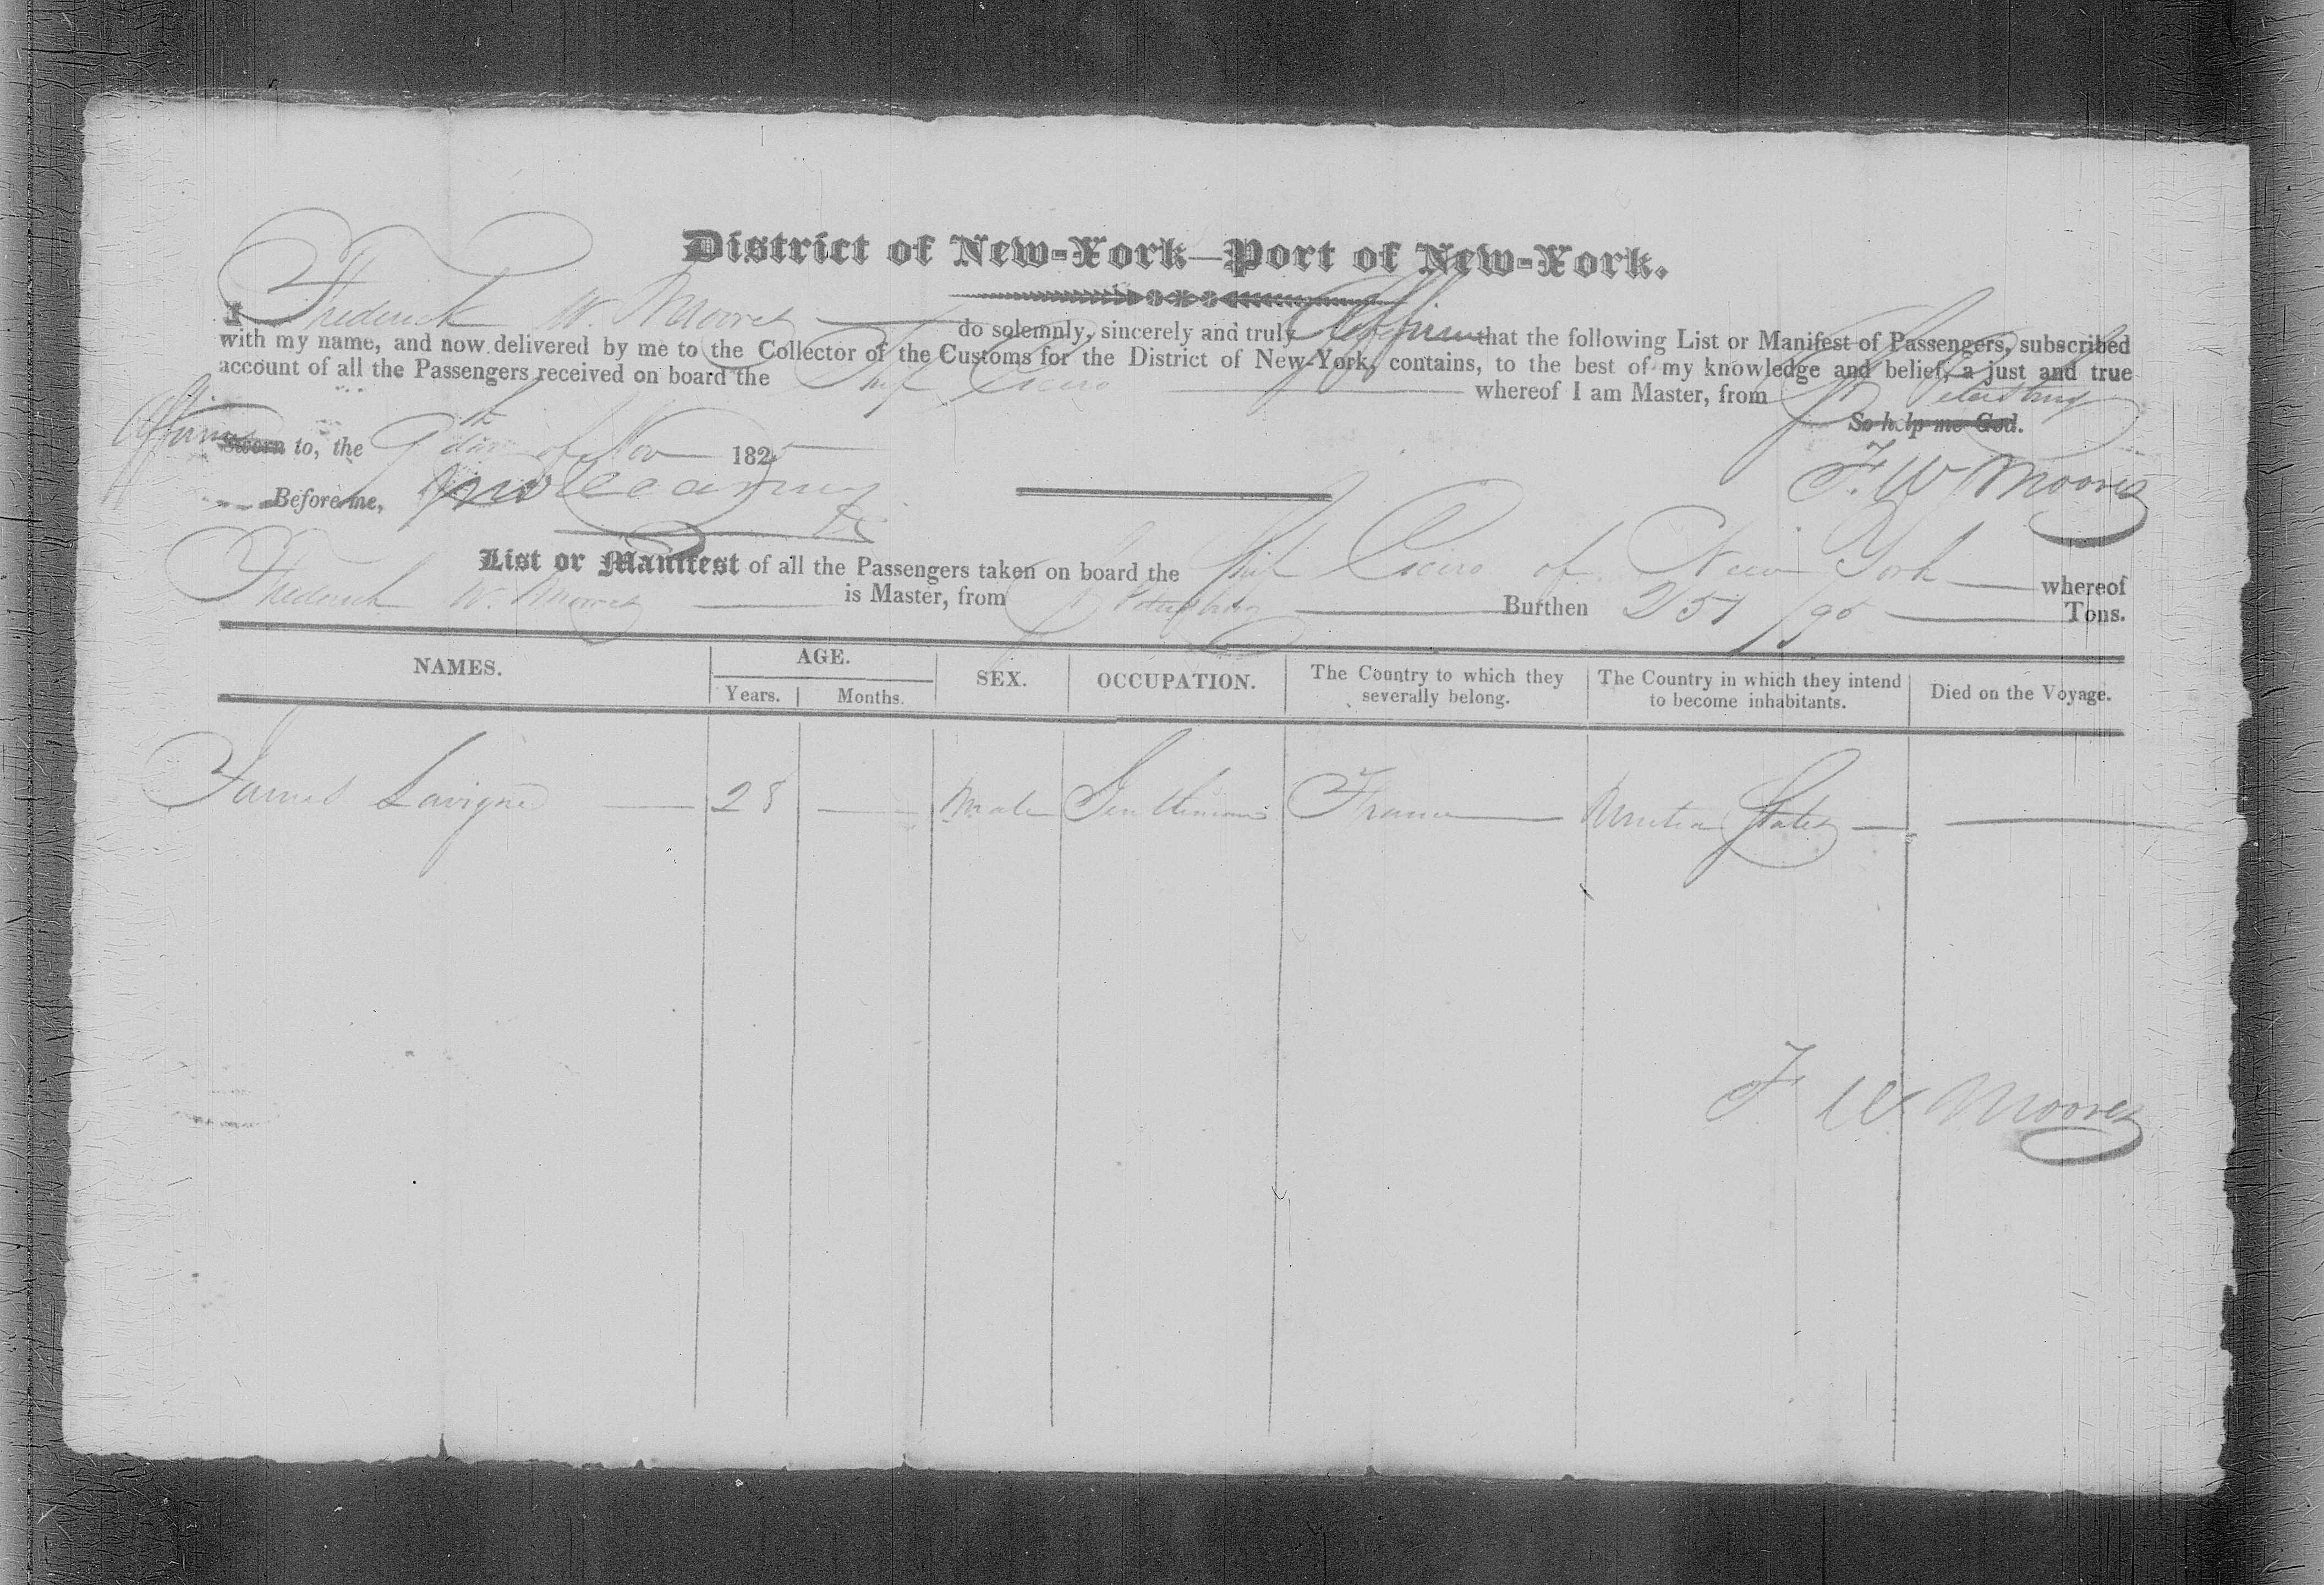 District of New-York—Port of New-York.
I Frederick W. Moores do solemnly, sincerely and truly Affirm that the following List or Manifest of Passengers, subscribed
with my name, and now delivered by me to the Collector of the Customs for the District of New-York, contains, to the best of my knowledge and belief, a just and true
account of all the Passengers received on board the Ship Cicero whereof I am Master, from St Petersburg
So help me God.
Affirmed Sworn to, the 9th day of Nov 1825
F. W Moores
Before me,
List or Manifest of all the Passengers taken on board the Ship Cicero of New York whereof
Frederick W. Moores is Master, from St Petersburg Burthen 251/95 Tons.
NAMES. AGE. SEX. OCCUPATION. The Country to which they severally belong. The Country in which they intend to become inhabitants. Died on the Voyage.
Years. Months.
James Lavigne — 28 — Male Gentleman France United States —
F. W. Moores